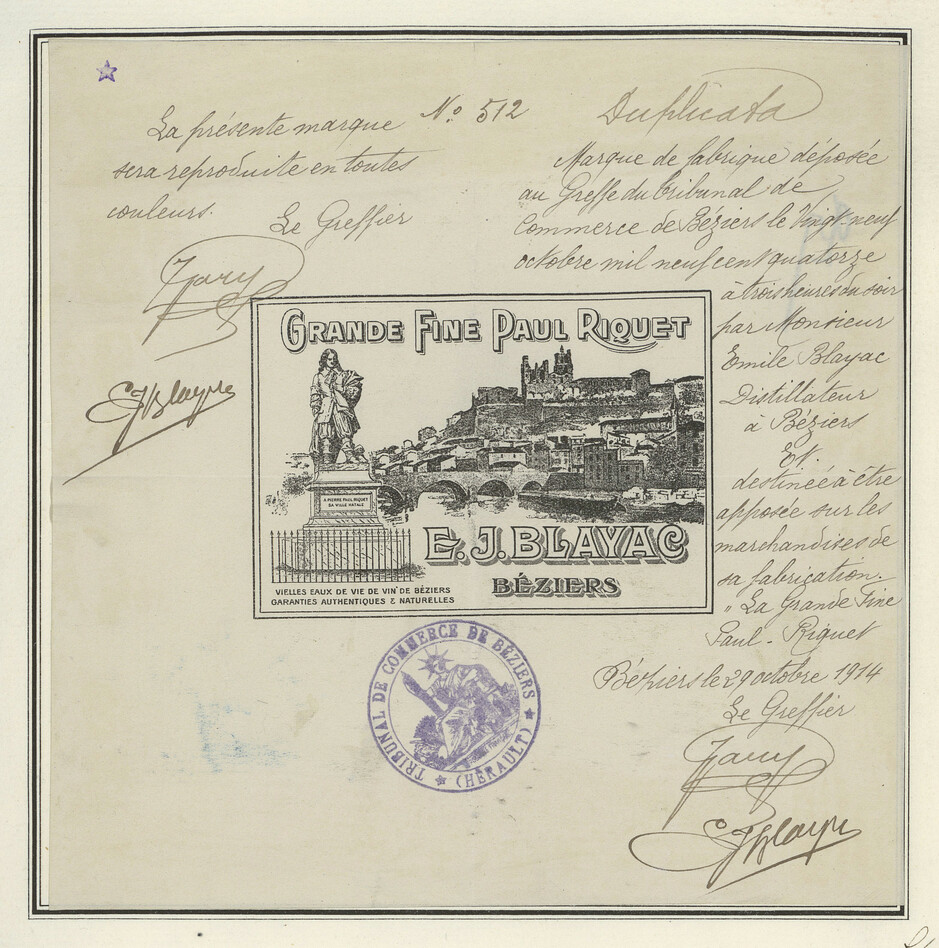 La présente marque
sera reproduite en toutes
couleurs.
Le Greffier
Nº 512
Duplicata
Marque de fabrique déposée
au Greffe du tribunal de
Commerce de Béziers le Vingt-neuf
octobre mil neuf cent quatorze
à trois heures du soir
par Monsieur
Emile Blayac
Distillateur
à Béziers
Et
destinée à être
apposée sur les
marchandises de
sa fabrication.
"La Grande Fine
Paul-Riquet
Béziers le 29 octobre 1914
Le Greffier
GRANDE FINE PAUL RIQUET
A PIERRE PAUL RIQUET
SA VILLE NATALE
E. J. BLAYAC
BÉZIERS
VIELLES EAUX DE VIE DE VIN DE BÉZIERS
GARANTIES AUTHENTIQUES & NATURELLES
TRIBUNAL DE COMMERCE DE BÉZIERS
(HÉRAULT)